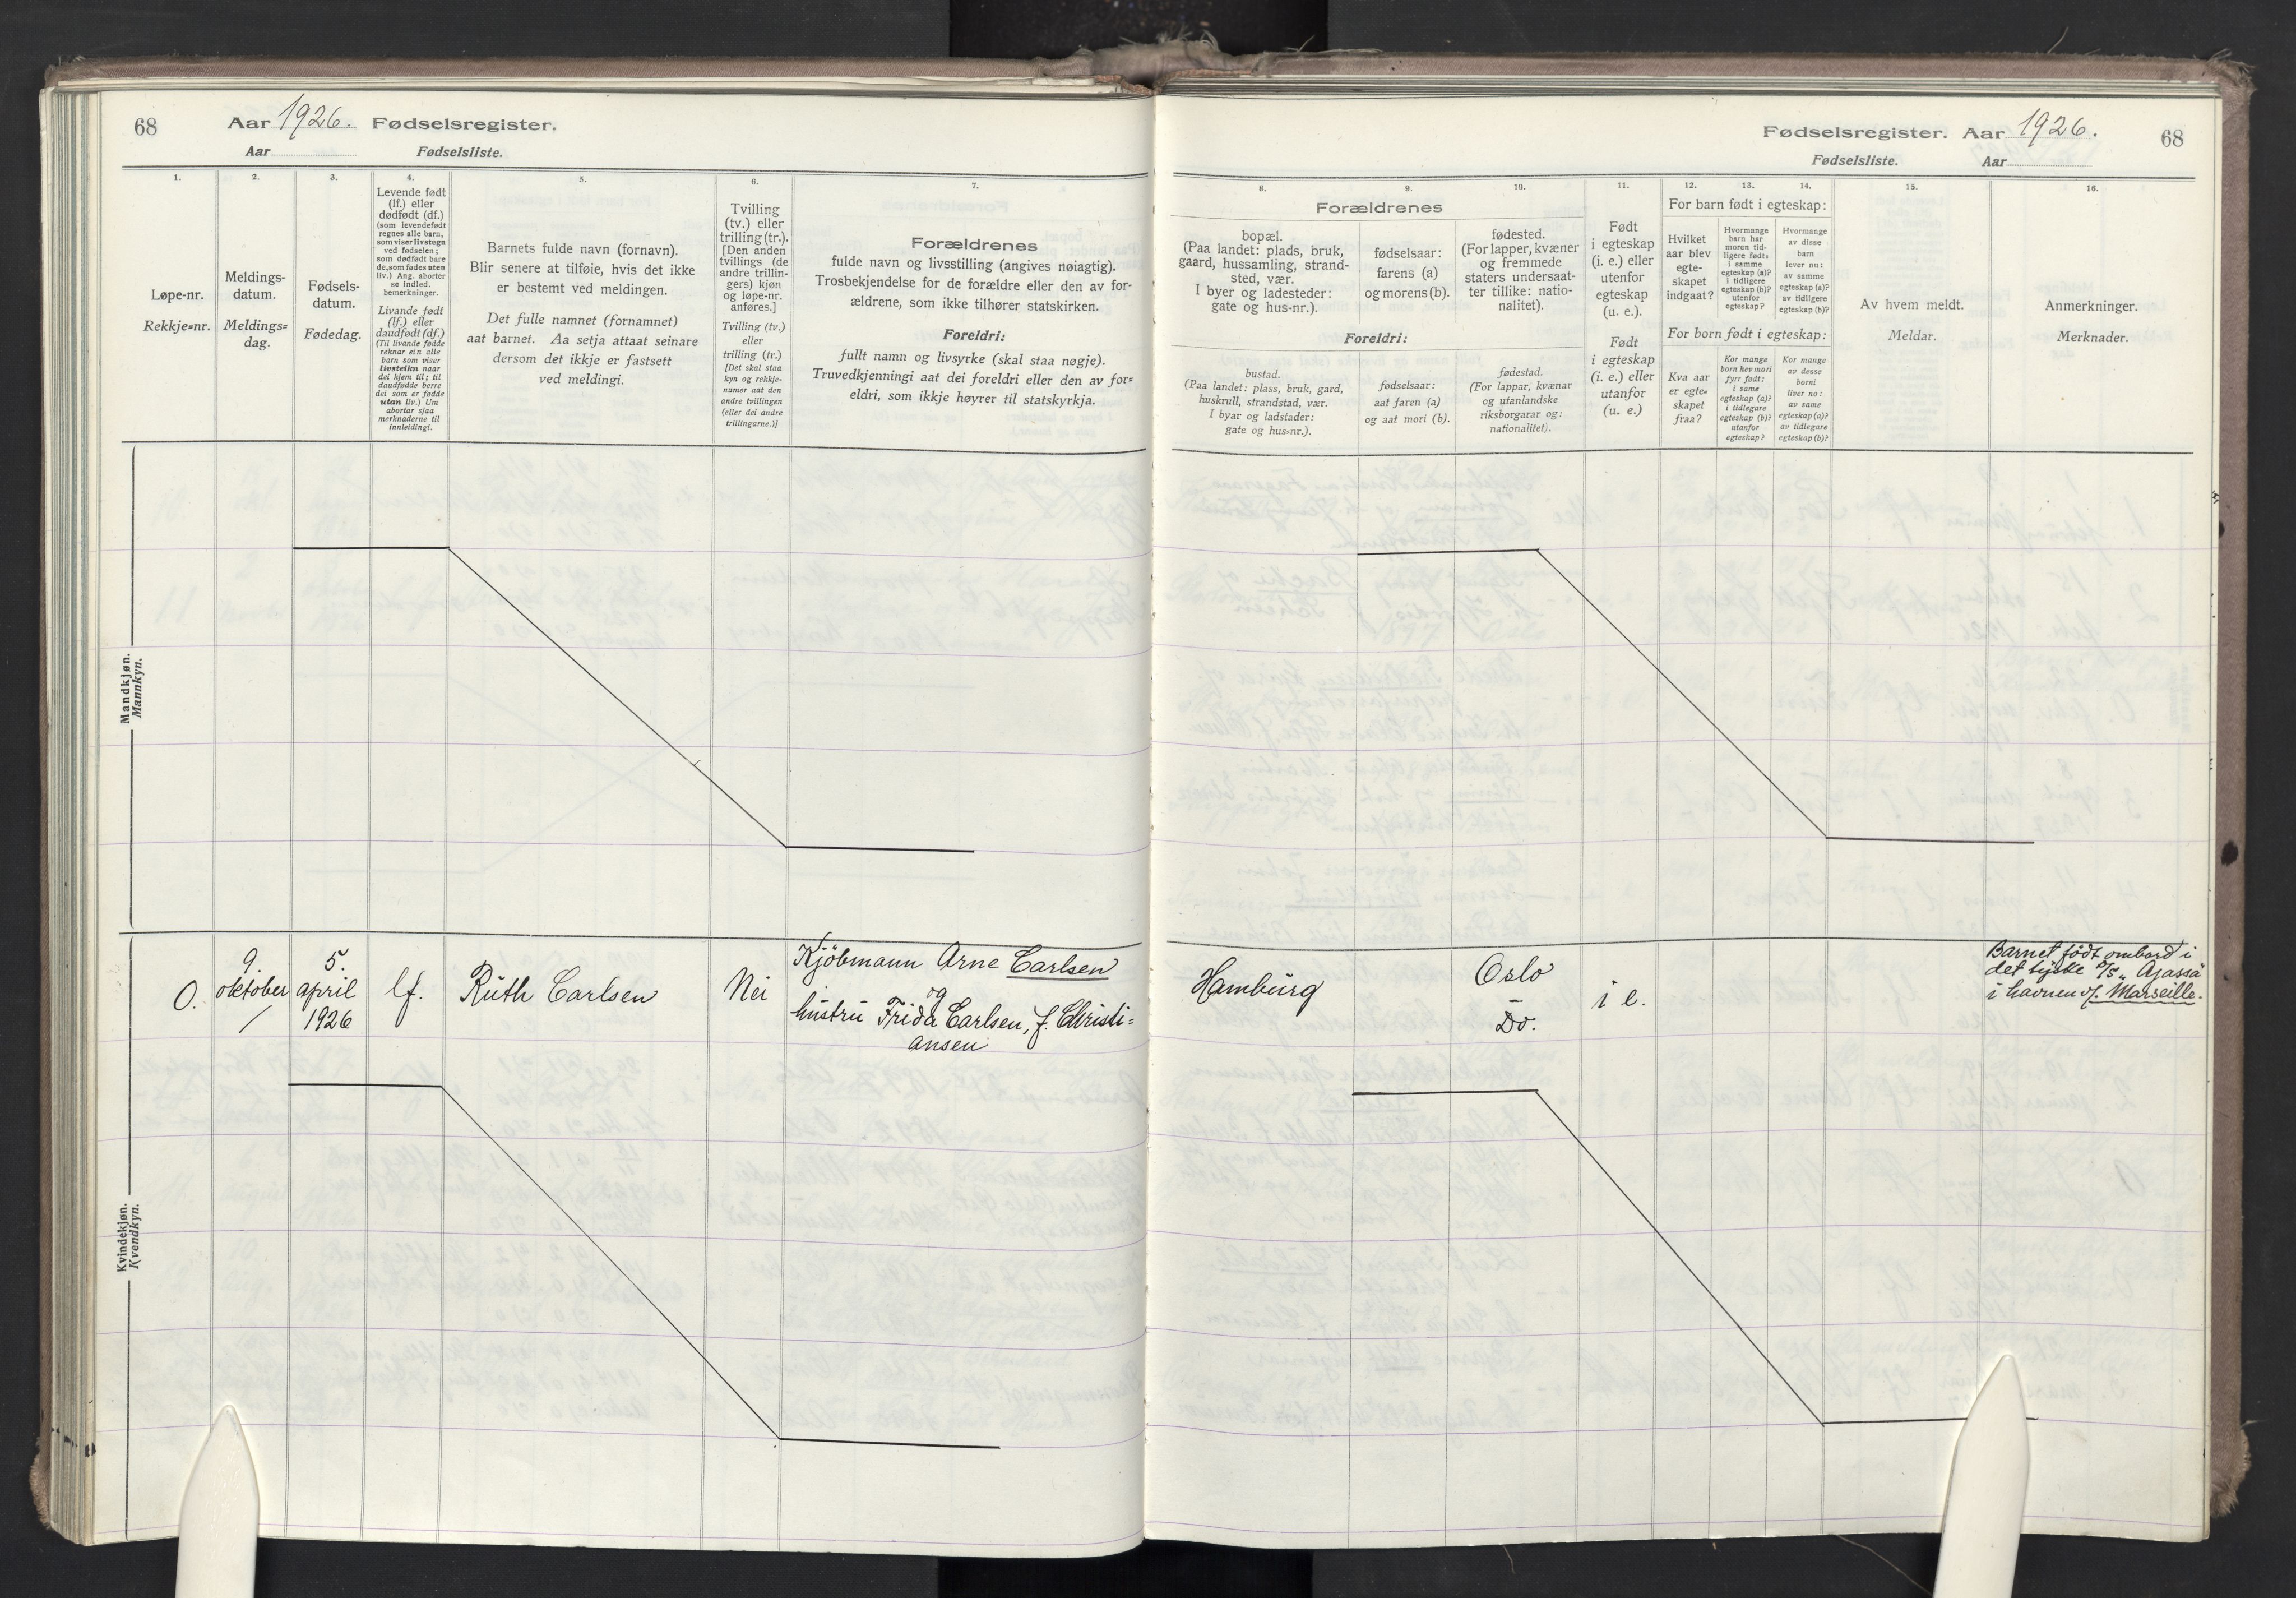 68
Aar 1926. Fødselsregister.
Aar Fødselsliste.
1.
Løpe-nr.
Rekkje=nr.
2.
Meldings-
datum.
Meldings=
dag.
3.
Fødsels-
datum.
Fødedag.
4.
Levende født
(lf.) eller
dødfødt (df.)
(som levendefødt
regnes alle barn,
som viser livstegn
ved fødselen;
som dødfødt bare
de, som fødes uten
liv.) Ang. aborter
se indled.
bemerkninger.
Livande født
(lf.) eller
daudfødt (df.)
(Til livande fødde
reknar ein alle
barn som viser
livsteikn naar
dei kjem til; til
daudfødde berre
dei som er fødde
utan liv.) Um
abortar sjaa
merknaderne til
innleidingi.
5.
Barnets fulde navn (fornavn).
Blir senere at tilføie, hvis det ikke
er bestemt ved meldingen.
Det fulle namnet (fornamnet)
aat barnet. Aa setja attaat seinare
dersom det ikkje er fastsett
ved meldingi.
6.
Tvilling
(tv.) eller
trilling (tr.).
[Den anden
tvillings (de
andre trillin-
gers) kjøn
og løpe-nr.
anføres.]
Tvilling (tv.)
eller
trilling (tr.)
[Det skal staa
kyn og rekkje-
numer aat den
andre tvillingen
(eller dei andre
trillingarne.)]
7.
Forældrenes
fulde navn og livsstilling (angives nøiagtig).
Trosbekjendelse for de forældre eller den av for-
ældrene, som ikke tilhører statskirken.
Foreldri:
fullt namn og livsyrke (skal staa nøgje).
Truvedkjenningi aat dei foreldri eller den av for=
eldri, som ikkje høyrer til statskyrkja.
Mandkjøn.
Mannkyn.
0.
9.
oktober
5.
april
1926
lf.
Ruth Carlsen
Nei
Kjöbmann Arne Carlsen
og
hustru Frida Carlsen, f. Christi=
ansen
Kvindekjøn.
Kvendkyn.
Fødselsregister. Aar 1926.
68
Fødselsliste. Aar
Forældrenes
8.
bopæl.
(Paa landet: plads, bruk,
gaard, hussamling, strand-
sted, vær.
I byer og ladesteder:
gate og hus-nr.).
9.
fødselsaar:
farens (a)
og morens (b).
10.
fødested.
(For lapper, kvæner
og fremmede
staters undersaat-
ter tillike: natio-
nalitet).
Foreldri:
bustad.
(Paa landet: plass, bruk, gard,
huskrull, strandstad, vær.
I byar og ladstader:
gate og hus=nr.).
fødselsaar:
aat faren (a)
og aat mori (b).
fødestad.
(For lappar, kvænar
og utanlandske
riksborgarar og:
nationalitet).
11.
Født
i egteskap
(i. e.) eller
utenfor
egteskap
(u. e.).
Født
i egteskap
(i. e.) eller
utanfor
(u. e.)
For barn født i egteskap:
12.
Hvilket
aar blev
egte-
skapet
indgaat?
13.
Hvormange
barn har
moren tid-
ligere født:
i samme
egteskap (a)?
i tidligere
egteskap (b)?
utenfor
egteskap?
14.
Hvormange
av disse
barn
lever nu:
av samme
egteskap (a)?
av tidligere
egteskap (b)?
For born født i egteskap:
Kva aar
er egte-
skapet
fraa?
Kor mange
born hev mori
fyrr født:
i same
egteskap (a)?
i tidlegare
egteskap (b)?
utanfor
egteskap?
Kor mange
av desse
borni
liver no:
av same
egteskap (a)?
av tidlegare
egteskap (b)?
15.
Av hvem meldt.
Meldar.
16.
Anmerkninger.
Merknader.
Hamburg
Oslo
Do.
i e.
Barnet født ombord i
det tyske D/S „Ajassa"
i havnen v/. Marseille.